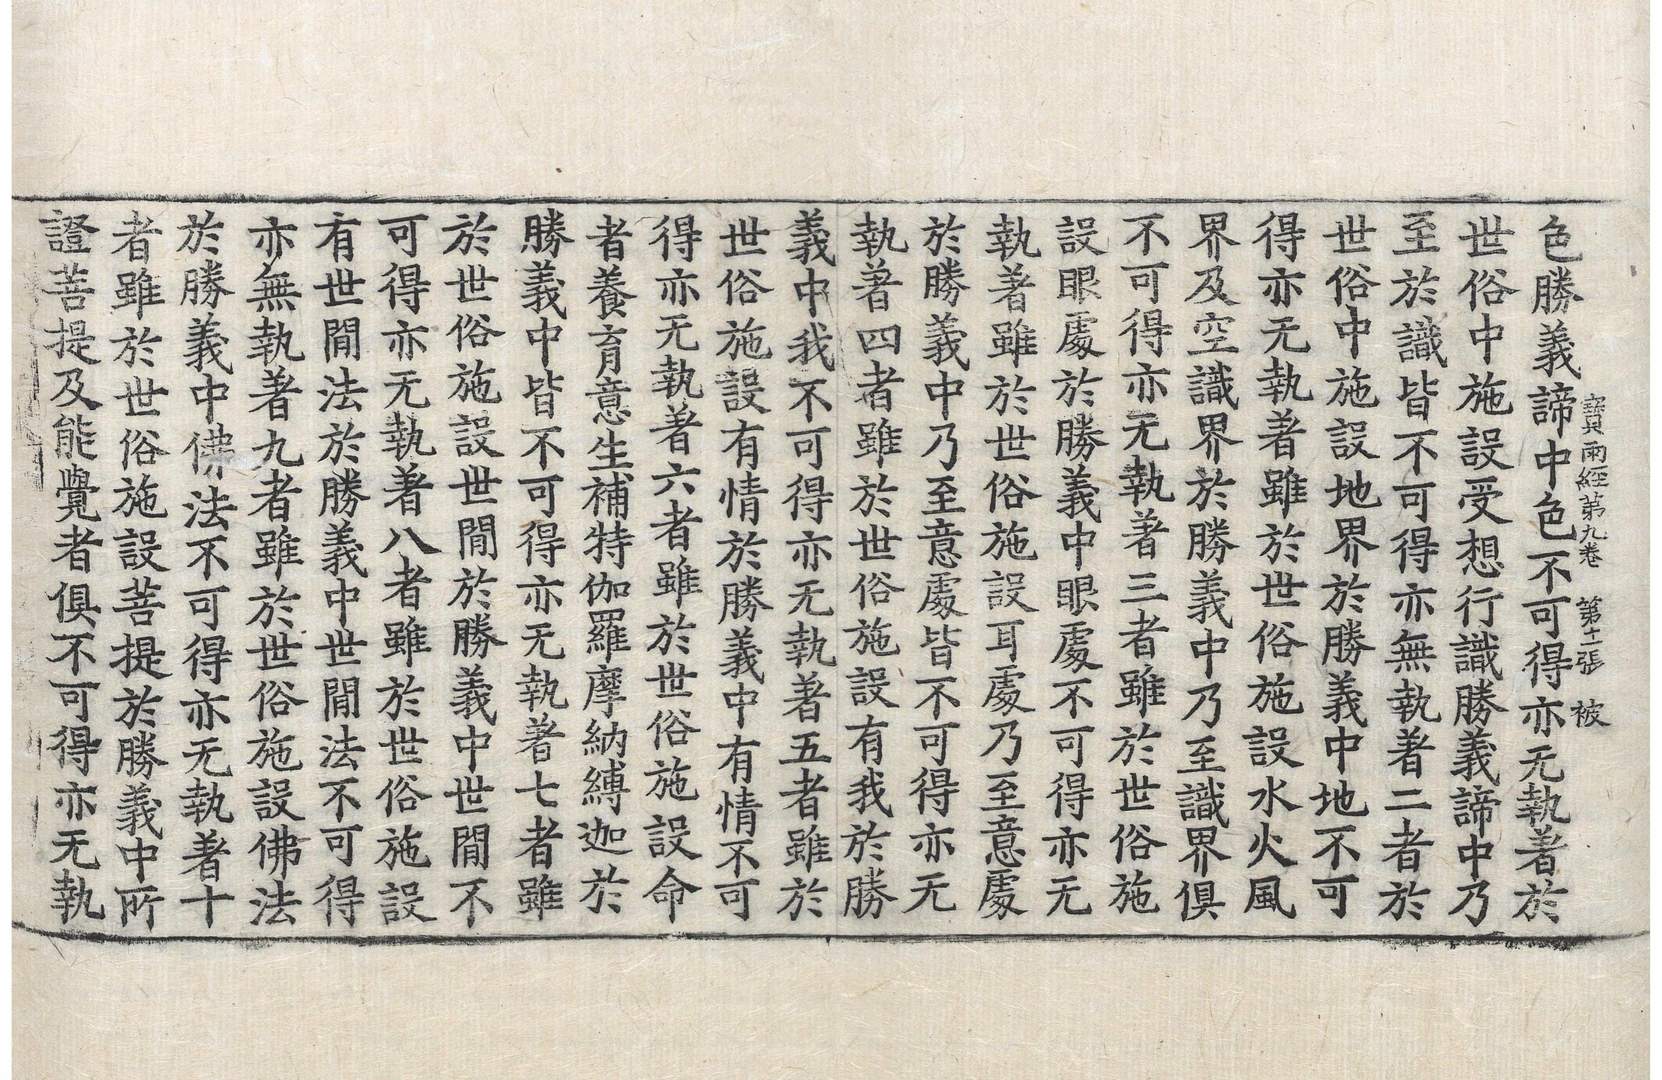 寶雨經第九卷　第十張　被
色勝義諦中色不可得亦无執著於
世俗中施設受想行識勝義諦中乃
至於識皆不可得亦無執著二者於
世俗中施設地界於勝義中地不可
得亦无執著雖於世俗施設水火風
界及空識界於勝義中乃至識界俱
不可得亦无執著三者雖於世俗施
設眼處於勝義中眼處不可得亦无
執著雖於世俗施設耳處乃至意處
於勝義中乃至意處皆不可得亦无
執著四者雖於世俗施設有我於勝
義中我不可得亦无執著五者雖於
世俗施設有情於勝義中有情不可
得亦无執著六者雖於世俗施設命
者養育意生補特伽羅摩納縛迦於
勝義中皆不可得亦无執著七者雖
於世俗施設世間於勝義中世間不
可得亦无執著八者雖於世俗施設
有世間法於勝義中世間法不可得
亦無執著九者雖於世俗施設佛法
於勝義中佛法不可得亦无執著十
者雖於世俗施設菩提於勝義中所
證菩提及能覺者俱不可得亦无執